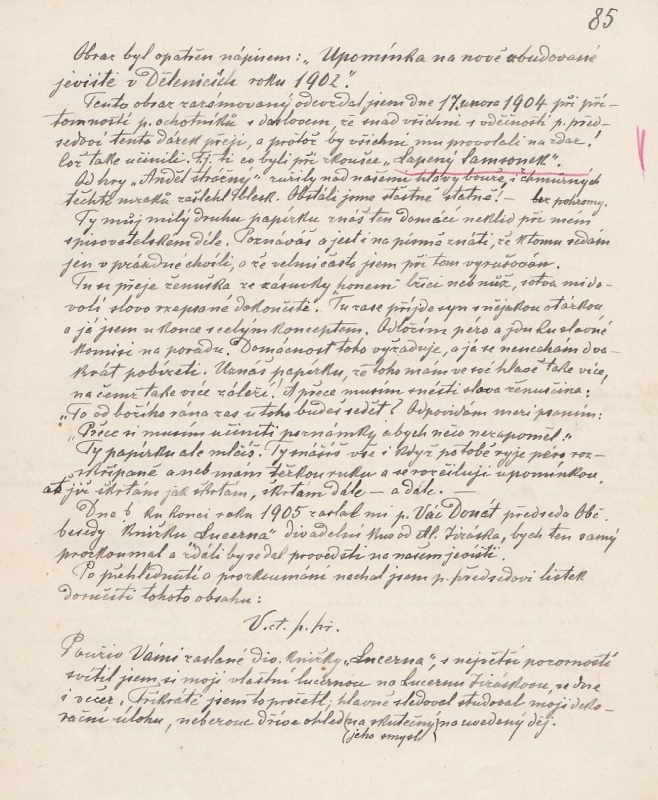 85
Obraz byl opatřen nápisem: „Upomínka na nově zbudované
jeviště v Dětenicích roku 1902".
Tento obraz zarámovaný odevzdal jsem dne 17. února 1904 při pří-
tomnosti p. ochotníků s doslovem, že snad všichni s vděčností p. před-
sedovi tento dárek přejí, a protož by všichni mu provolali na zdar!
Což také učinili. T.j. ti co byli při zkoušce „Lapený Samsonek".
Od hry „Anděl strážný" zuřily nad našemi hlavy bouře, i chmurných
těchto mraků zašlehl blesk. Obstáli jsme šťastně statně! — bez pohromy.
Ty můj milý druhu papírku znáš ten domácí neklid při mém
spisovatelském díle. Poznáváš a jest i na písmě znáti, že k tomu sedám
jen v prázdné chvíli, a že velmi často jsem při tom vyrušován.
Tu si přeje ženuška ze zásuvky honem lžíci neb nůž, sotva mi do-
volí slovo rozepsané dokončiti. Tu zase přijde syn s nějakou otázkou
a já jsem u konce s celým konceptem. Odložím pero a jdu ku slavné
komisi na poradu. Domácnost toho vyžaduje, a já se nenechám dva-
krát pobízeti. Uznáš papírku, že toho mám ve své hlavě také více,
na čemž také více záleží! A přece musím snésti slova ženušžina:
„To od božího rána zas u toho budeš sedět? Odpovídám mezi psaním:
„Přece si musím učiniti poznámky abych něco nezapoměl."
Ty papírku ale mlčíš. Ty snášíš vše i když po tobě ryje péro roz-
skřípané aneb mám těžkou ruku a se rozčiluji upomínkou,
ať již škrtám jak škrtám, škrtám dále — a dále. —
Dna 8 ku konci roku 1905 zaslal mi p. Vác Donát předseda Obč.
besedy knížku „Lucerna" divadelní kus od Al. Jiráska, bych ten samý
prozkoumal a zdáli by se dal provésti na našem jevišti.
Po přehlédnutí a prozkoumání nechal jsem p. předsedovi lístek
doručiti tohoto obsahu:
V. ct. p. př.
Použiv Vámi zaslané div. knížky „Lucerna", s největší pozorností
svítil jsem si mojí vlastní lucernou na Lucernu Jiráskovu, ve dne
i večer. Třikráte jsem to pročetl; hlavně sledoval studoval moji deko-
rační úlohu, neberouc dříve ohled (na skutečný) na uvedený děj.
(jeho smysl)